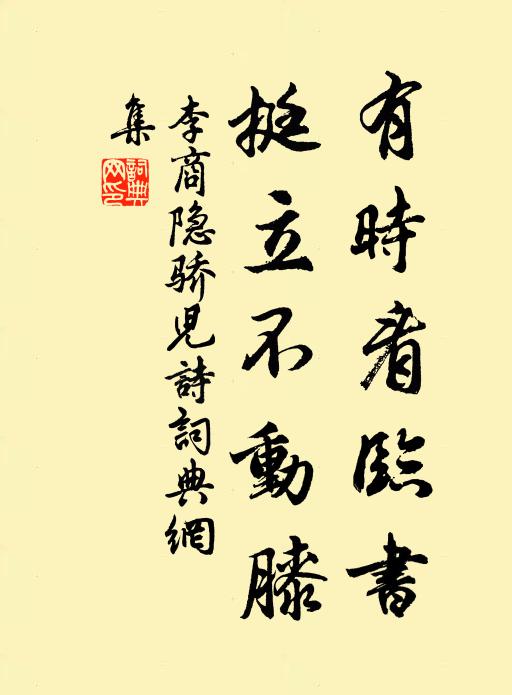 有時看臨書
挺立不動膝
李商隐骄兒詩詞典網
集
詞典网印